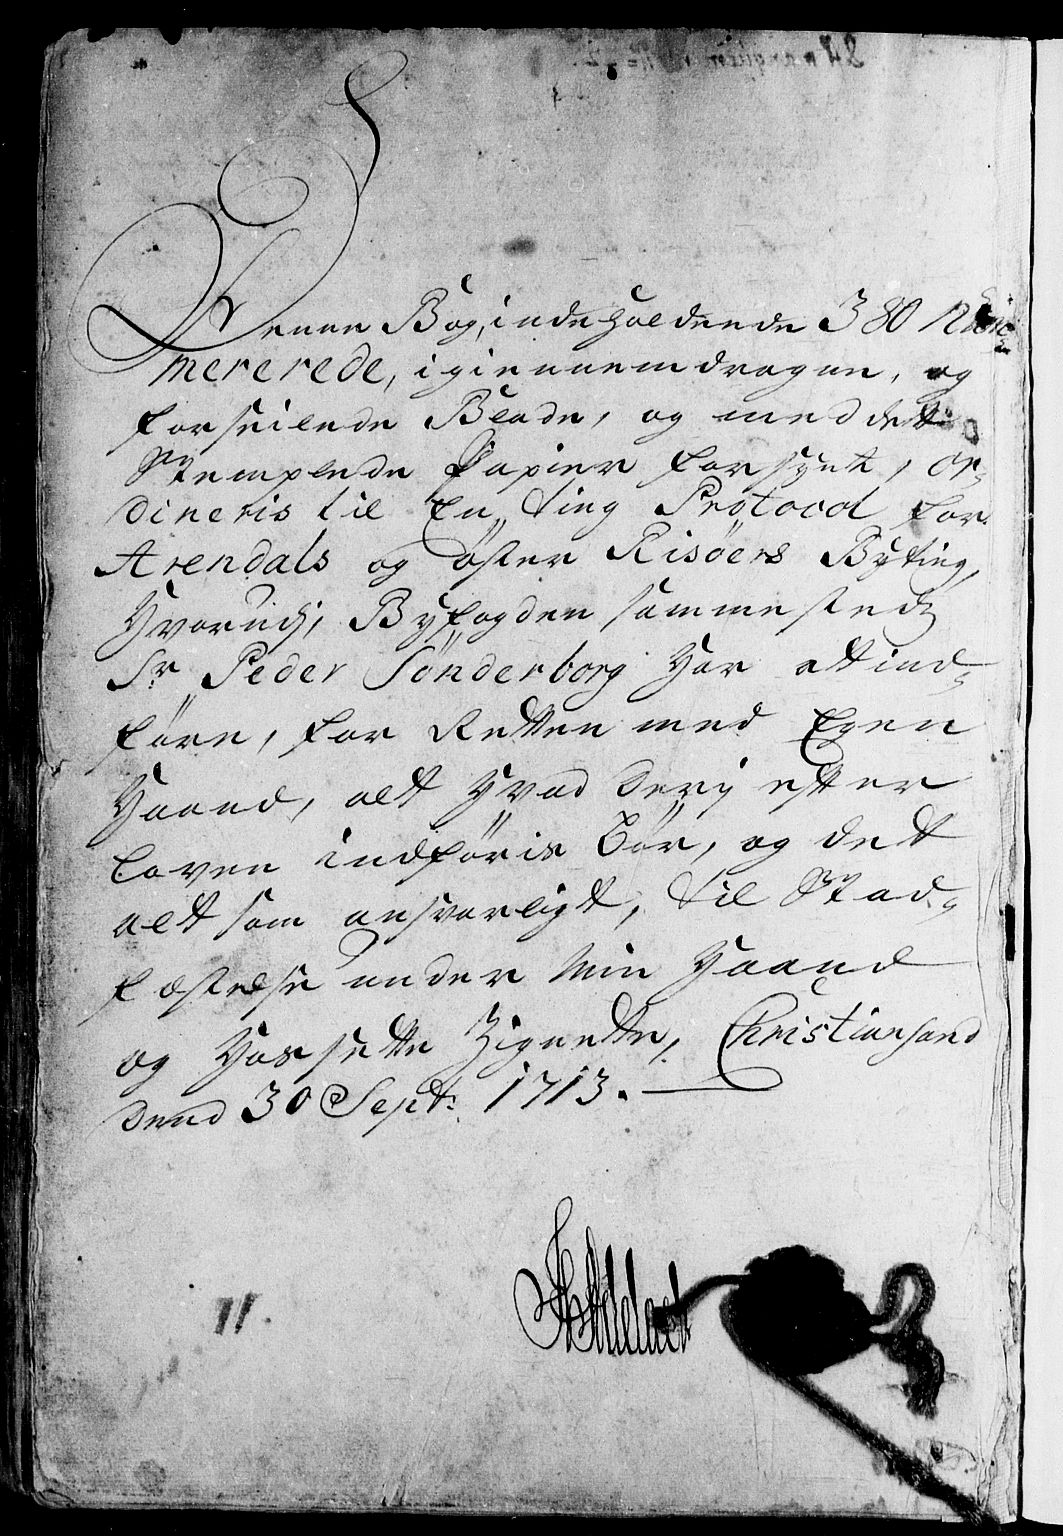 Denne Bog, indeholdende 380 Num¬
mererede, igiennemdragne, og
forseilede Blade, og med det
Stemplede Papier forsynt, or¬
dineris til En Ting Protocol for
Arendals og Öster Risöers Byting,
Hvorudj Byfogden sammesteds
Sr. Peder Sönderborg Har at ind¬
före, for Retten med Egen
Haand, alt Hvad Derj efter
Loven indföris bör, og det
alt som ansvarligt, til Stad¬
fæstelse under Min Haand
og Hossette Zignette, Christiansand
Dend 30 Sept: 1713.
11.